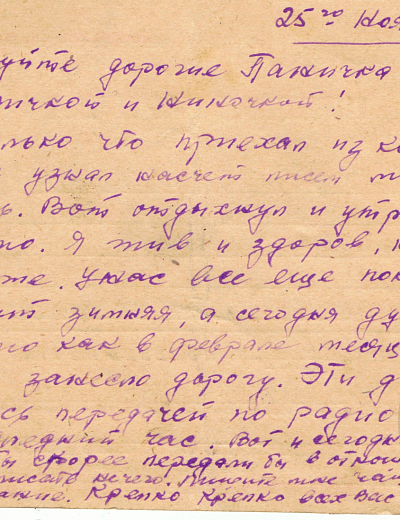 25го Ноя
уйте дорогие Паничка
ичкой и Ниночкой!
лько что приехал из к
узнал насчет писем
ь. Вот отдыхнул и утр
о. Я жив и здоров,
же. У нас все еще пок
ит зимняя, а сегодня ду
о как в феврале месяц
занесло дорогу. Эти д
сь передачей по радио
ледний час. Вот и сегодн
бы скорее передали бы в отнош
писать нечего. Пишите мне чащ
ание. Крепко Крепко всех Вас